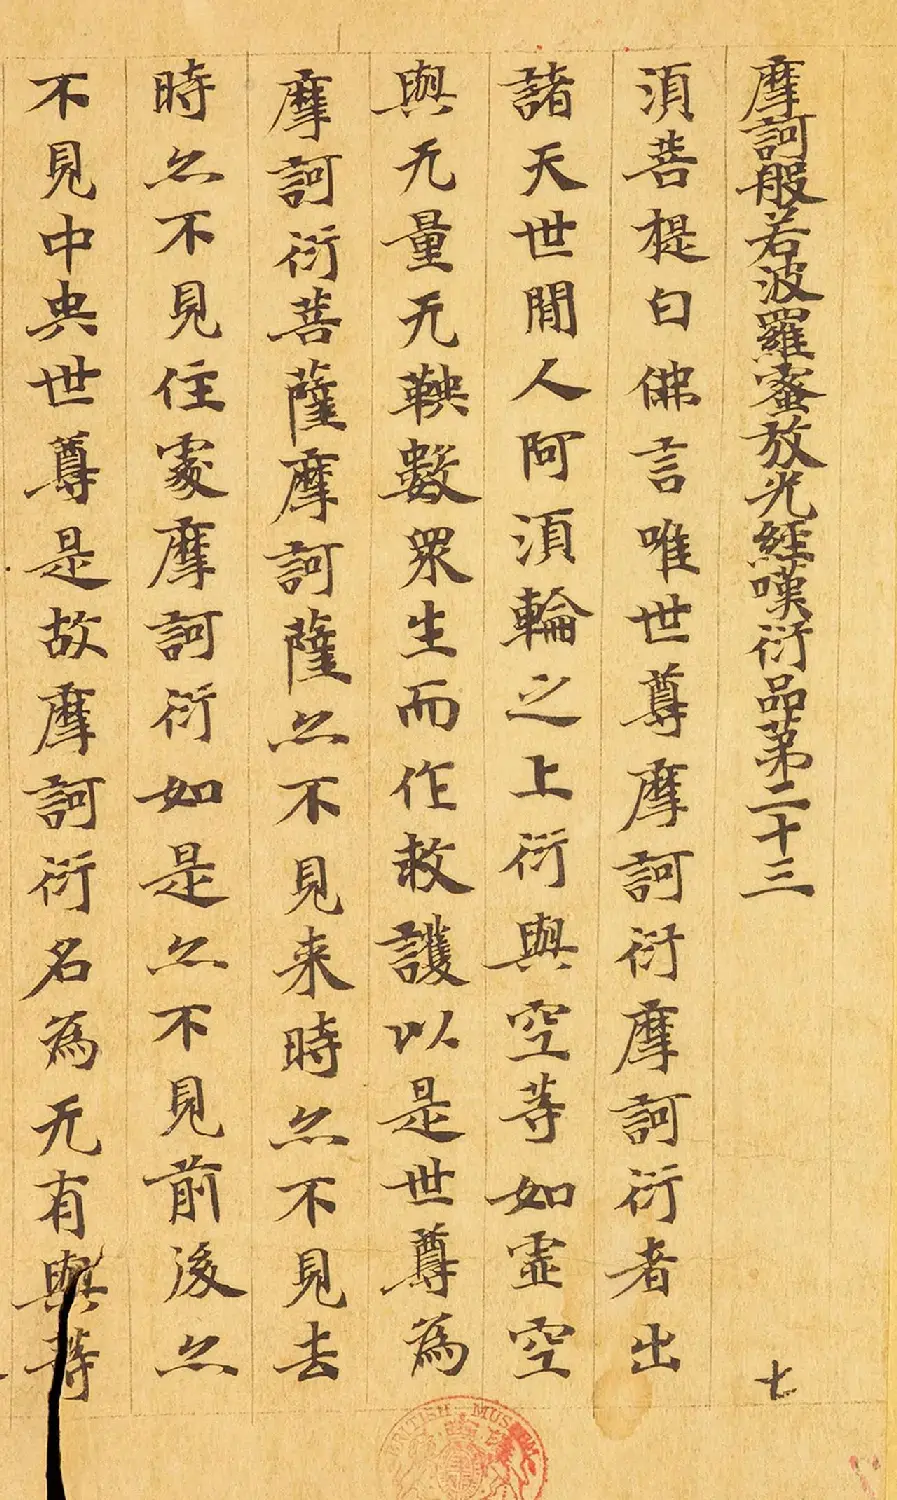 摩訶般若波羅蜜放光經嘆衍品第二十三 七
須菩提白佛言唯世尊摩訶衍摩訶衍者出
諸天世間人阿須輪之上衍與空等如虛空
與无量无鞅數眾生而作救護以是世尊為
摩訶衍菩薩摩訶薩亦不見来時亦不見去
時亦不見住處摩訶衍如是亦不見前後亦
不見中央世尊是故摩訶衍名為无有與等
BRITISH MUSEUM